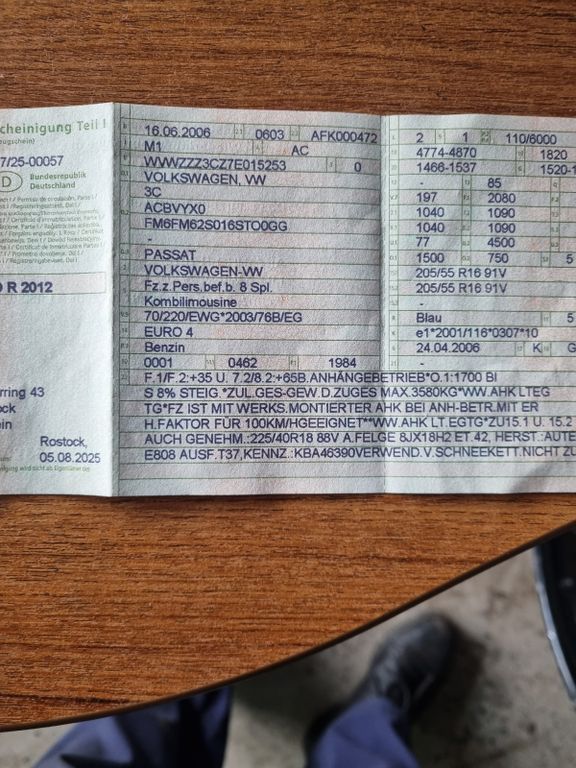 cheinigung Teil I
7/25-00057
D Bundesrepublik
Deutschland
R 2012
rring 43
Rostock,
05.08.2025
16.06.2006 0603 AFK000472
M1 AC
WVWZZZ3CZ7E015253 0
VOLKSWAGEN, VW
3C
ACBVYX0
FM6FM62S016STO0GG
-
PASSAT
VOLKSWAGEN-VW
Fz.z.Pers.bef.b. 8 Spl.
Kombilimousine
70/220/EWG*2003/76B/EG
EURO 4
Benzin
0001 0462 1984
2 1 110/6000
4774-4870 1820
1466-1537 1520-1
- 85
197 2080
1040 1090
1040 1090
77 4500
1500 750 5
205/55 R16 91V
205/55 R16 91V
-
Blau 5
e1*2001/116*0307*10
24.04.2006 K G
-
F.1/F.2:+35 U. 7.2/8.2:+65B.ANHÄNGEBETRIEB*O.1:1700 BI
S 8% STEIG.*ZUL.GES-GEW.D.ZUGES MAX.3580KG*WW.AHK LTEG
TG*FZ IST MIT WERKS.MONTIERTER AHK BEI ANH-BETR.MIT ER
H.FAKTOR FÜR 100KM/HGEEIGNET**WW.AHK LT.EGTG*ZU15.1 U. 15.2
AUCH GENEHM.:225/40R18 88V A.FELGE 8JX18H2 ET.42, HERST.:AUTE
E808 AUSF.T37,KENNZ.:KBA46390VERWEND.V.SCHNEEKETT.NICHT ZU